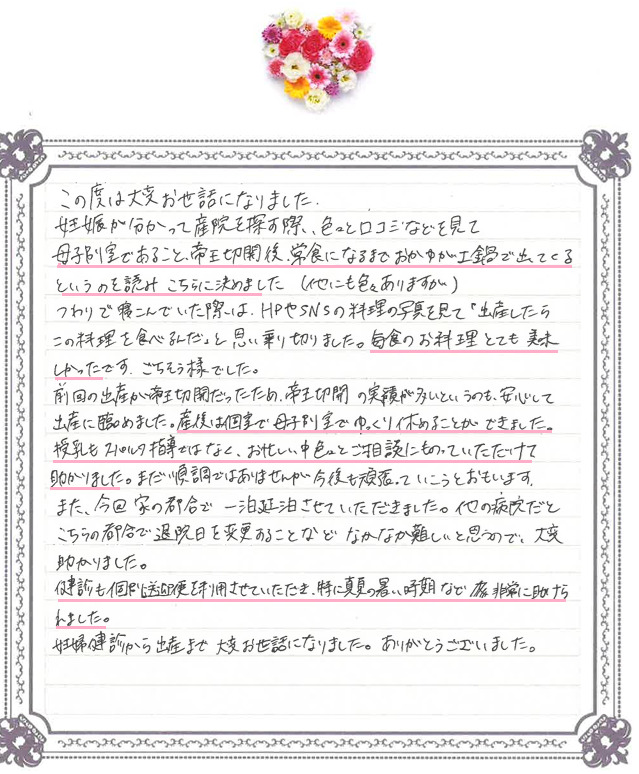 この度は大変お世話になりました.
妊娠が分かって産院を探す際、色々と口コミなどを見て
母子別室であること、帝王切開後、常食になるまでおかゆが土鍋で出てくる
というのを読み こちらに決めました (他にも色々ありますが)
つわりで寝こんでいた際は、HPやSNSの料理の写真を見て「出産したら
この料理を食べるんだ」と思い乗り切りました。毎食のお料理とても美味
しかったです. ごちそう様でした。
前回の出産が帝王切開だったため、帝王切開の実績が多いというのも、安心して
出産に臨めました。産後は個室で母子別室でゆっくり休めることができました。
授乳もスパルタ指導ではなく、お忙しい中色々とご相談にもっていただけて
助かりました。まだまだ順調ではありませんが今後も頑張っていこうとおもいます.
また、今回家の都合で 一泊延泊させていただきました。他の病院だと
こちらの都合で退院日を変更することなど なかなか難しいと思うので、大変
助かりました。
健診も個別送迎便を利用させていただき、特に真夏の暑い時期など 非常に助けら
れました。
妊婦健診から出産まで 大変お世話になりました。ありがとうございました。